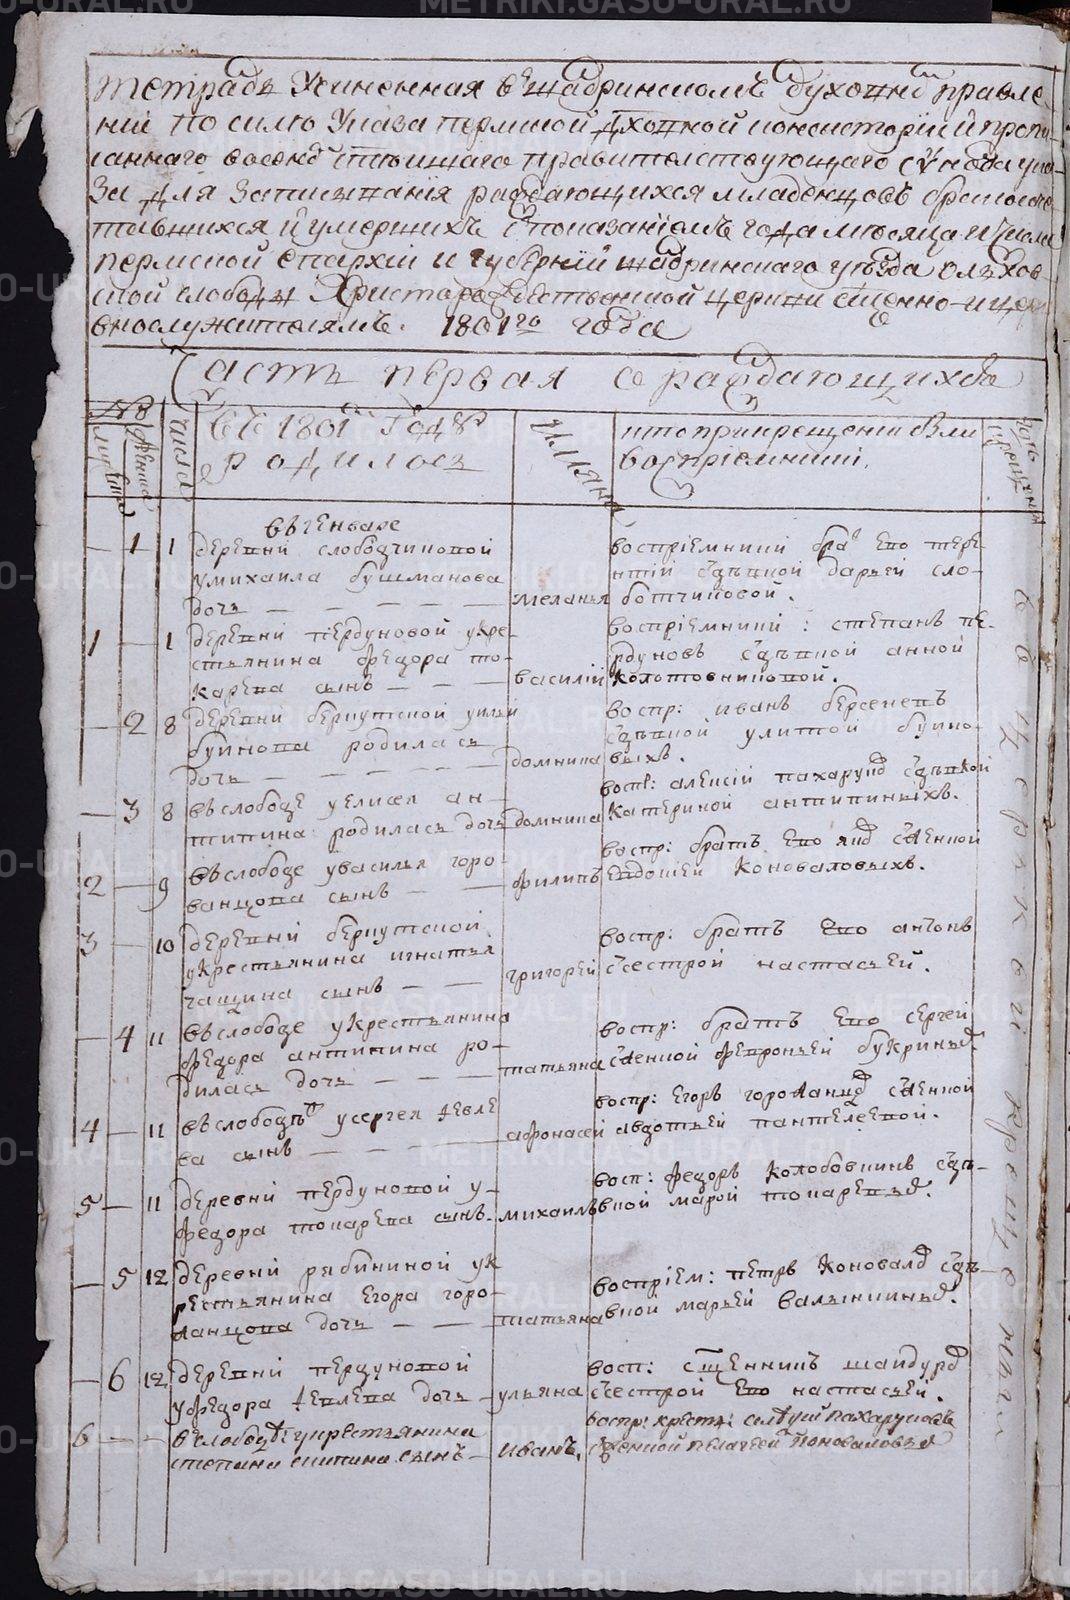 тетрадь Учиненная в Шадринскомъ духовнѣ правле
нии по силѣ Указа пермской духовной консистории и пропи
саннаго во оной святѣйшаго правителствующаго Сѵнода ука
за для записыванія раждающихся младенцовъ бракосоче
тавшихся и умершихъ с показаніемъ года мѣсяца и числа
пермской епархіи и губерніи шадринскаго уѣзда ольхов
ской слободы Христорождественской церкви священно-и цер
внослужителямъ. 1801го года
Часть первая о раждающихся
№
мужеска
женска
числа
въ 1801м Годѣ
родилось
имяна
кто при крещеніи были
воспріемники.
въ генваре
1 1 деревни слободчиковой
умихаила бушманова
дочь — — — — — меланья
воспріемники братъ ево тере-
нтій сдѣвкой дарьей сло-
ботчиковой.
1 — 1 деревни пердуновой укре-
стьянина федора то-
карева сынъ — — — василій
воспріемники: степанъ пе-
рдуновъ сдѣвкой анной
колотовкиновой.
— 2 8 деревни беркутской уильи
буйнова родилась
дочь — — — — — домника
воспр: иванъ берсеневъ
сдѣвкой улитой буйно-
выхъ.
— 3 8 въ слободе уелисея ан-
типина родилась дочь домника
воспр: алексій пахаруковъ сдѣвкой
катериной антипиныхъ.
2 — 9 въ слободе увасилья горо-
ванцова сынъ — — филипъ
воспр: братъ ево яковъ сженкой
евдокией коноваловыхъ.
3 — 10 деревни беркутской
укрестьянина игнатья
чащина сынъ — — григорей
воспр: братъ ево антонъ
ссестрой настасьей.
— 4 11 въ слободе укрестьянина
федора антипина ро-
дилась дочь — — — татьяна
воспр: братъ ево сергей
сженкой февроньей букриныхъ.
4 — 11 въ слободѣ усергея
ва сынъ — — — афонасей
воспр: егоръ сженкой
авдотьей пантелеевой.
5 — 11 деревни пердуновой у-
федора токарева сынъ — михаилъ
восп: федоръ колобовкинъ сдѣ-
вкой марой токаревыхъ.
— 5 12 деревни рябининой ук
рестьянина егора горо-
ланцова дочь — — — татьяна
воспріем: петръ коноваловъ сдѣ-
вкой марьей
— 6 12 деревни пердуновой
уфедора дочь — ульяна
восп: священникъ шайдуровъ
ссестрой ево настасьей.
6 — — въ слободѣ укрестьянина
степана сынъ — иванъ.
воспр: крестъ: пахаруковъ
сженкой пелагеей коноваловыхъ